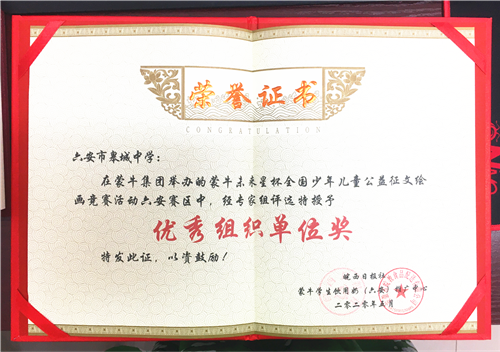 荣誉证书
CONGRATULATION
六安市皋城中学：
在蒙牛集团举办的蒙牛未来星杯全国少年儿童公益征文绘
画竞赛活动六安赛区中，经专家组评选特授予
优秀组织单位奖
特发此证，以资鼓励！
皖西日报社
蒙牛学生饮用奶（六安）推广中心
二〇二〇年五月